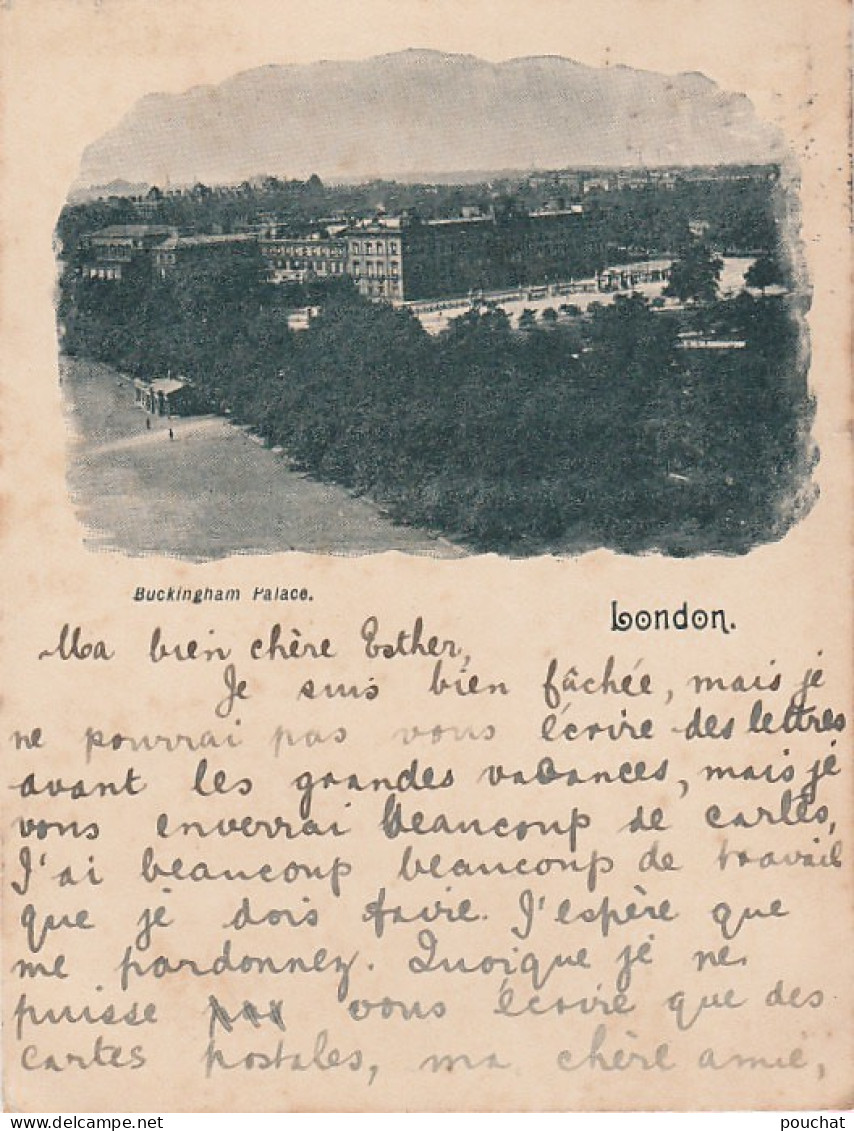 Buckingham Palace.
London.
Ma bien chère Esther,
Je suis bien fâchée, mais je
ne pourrai pas vous écrire des lettres
avant les grandes vacances, mais je
vous enverrai beaucoup de cartes,
J'ai beaucoup beaucoup de travail
que je dois faire. J'espère que
me pardonnez. Quoique je ne
puisse pas vous écrire que des
cartes postales, ma chère amie,
DELCAMPE.NET
pouchat